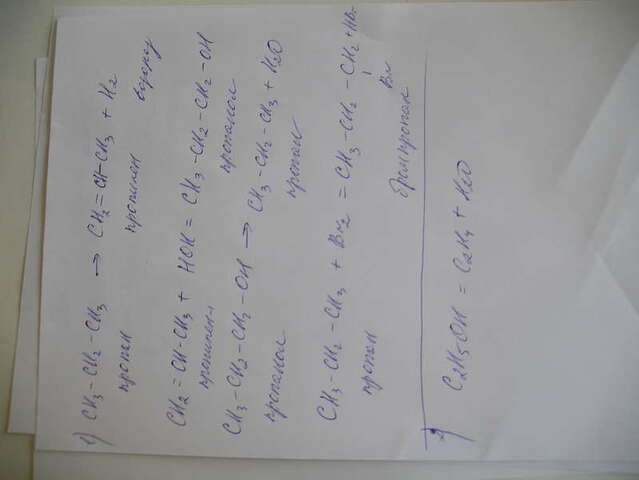 1) CH3-CH2-CH3 → CH2=CH-CH3 + H2
пропан пропилен водород
CH2=CH-CH3 + HOH = CH3-CH2-CH2-OH
пропилен пропанол
CH3-CH2-CH2-OH → CH3-CH2-CH3 + H2O
пропанол пропан
CH3-CH2-CH3 + Br2 = CH3-CH2-CH2 + HBr
Br
пропан бромпропан
2)
C2H5OH = C2H4 + H2O